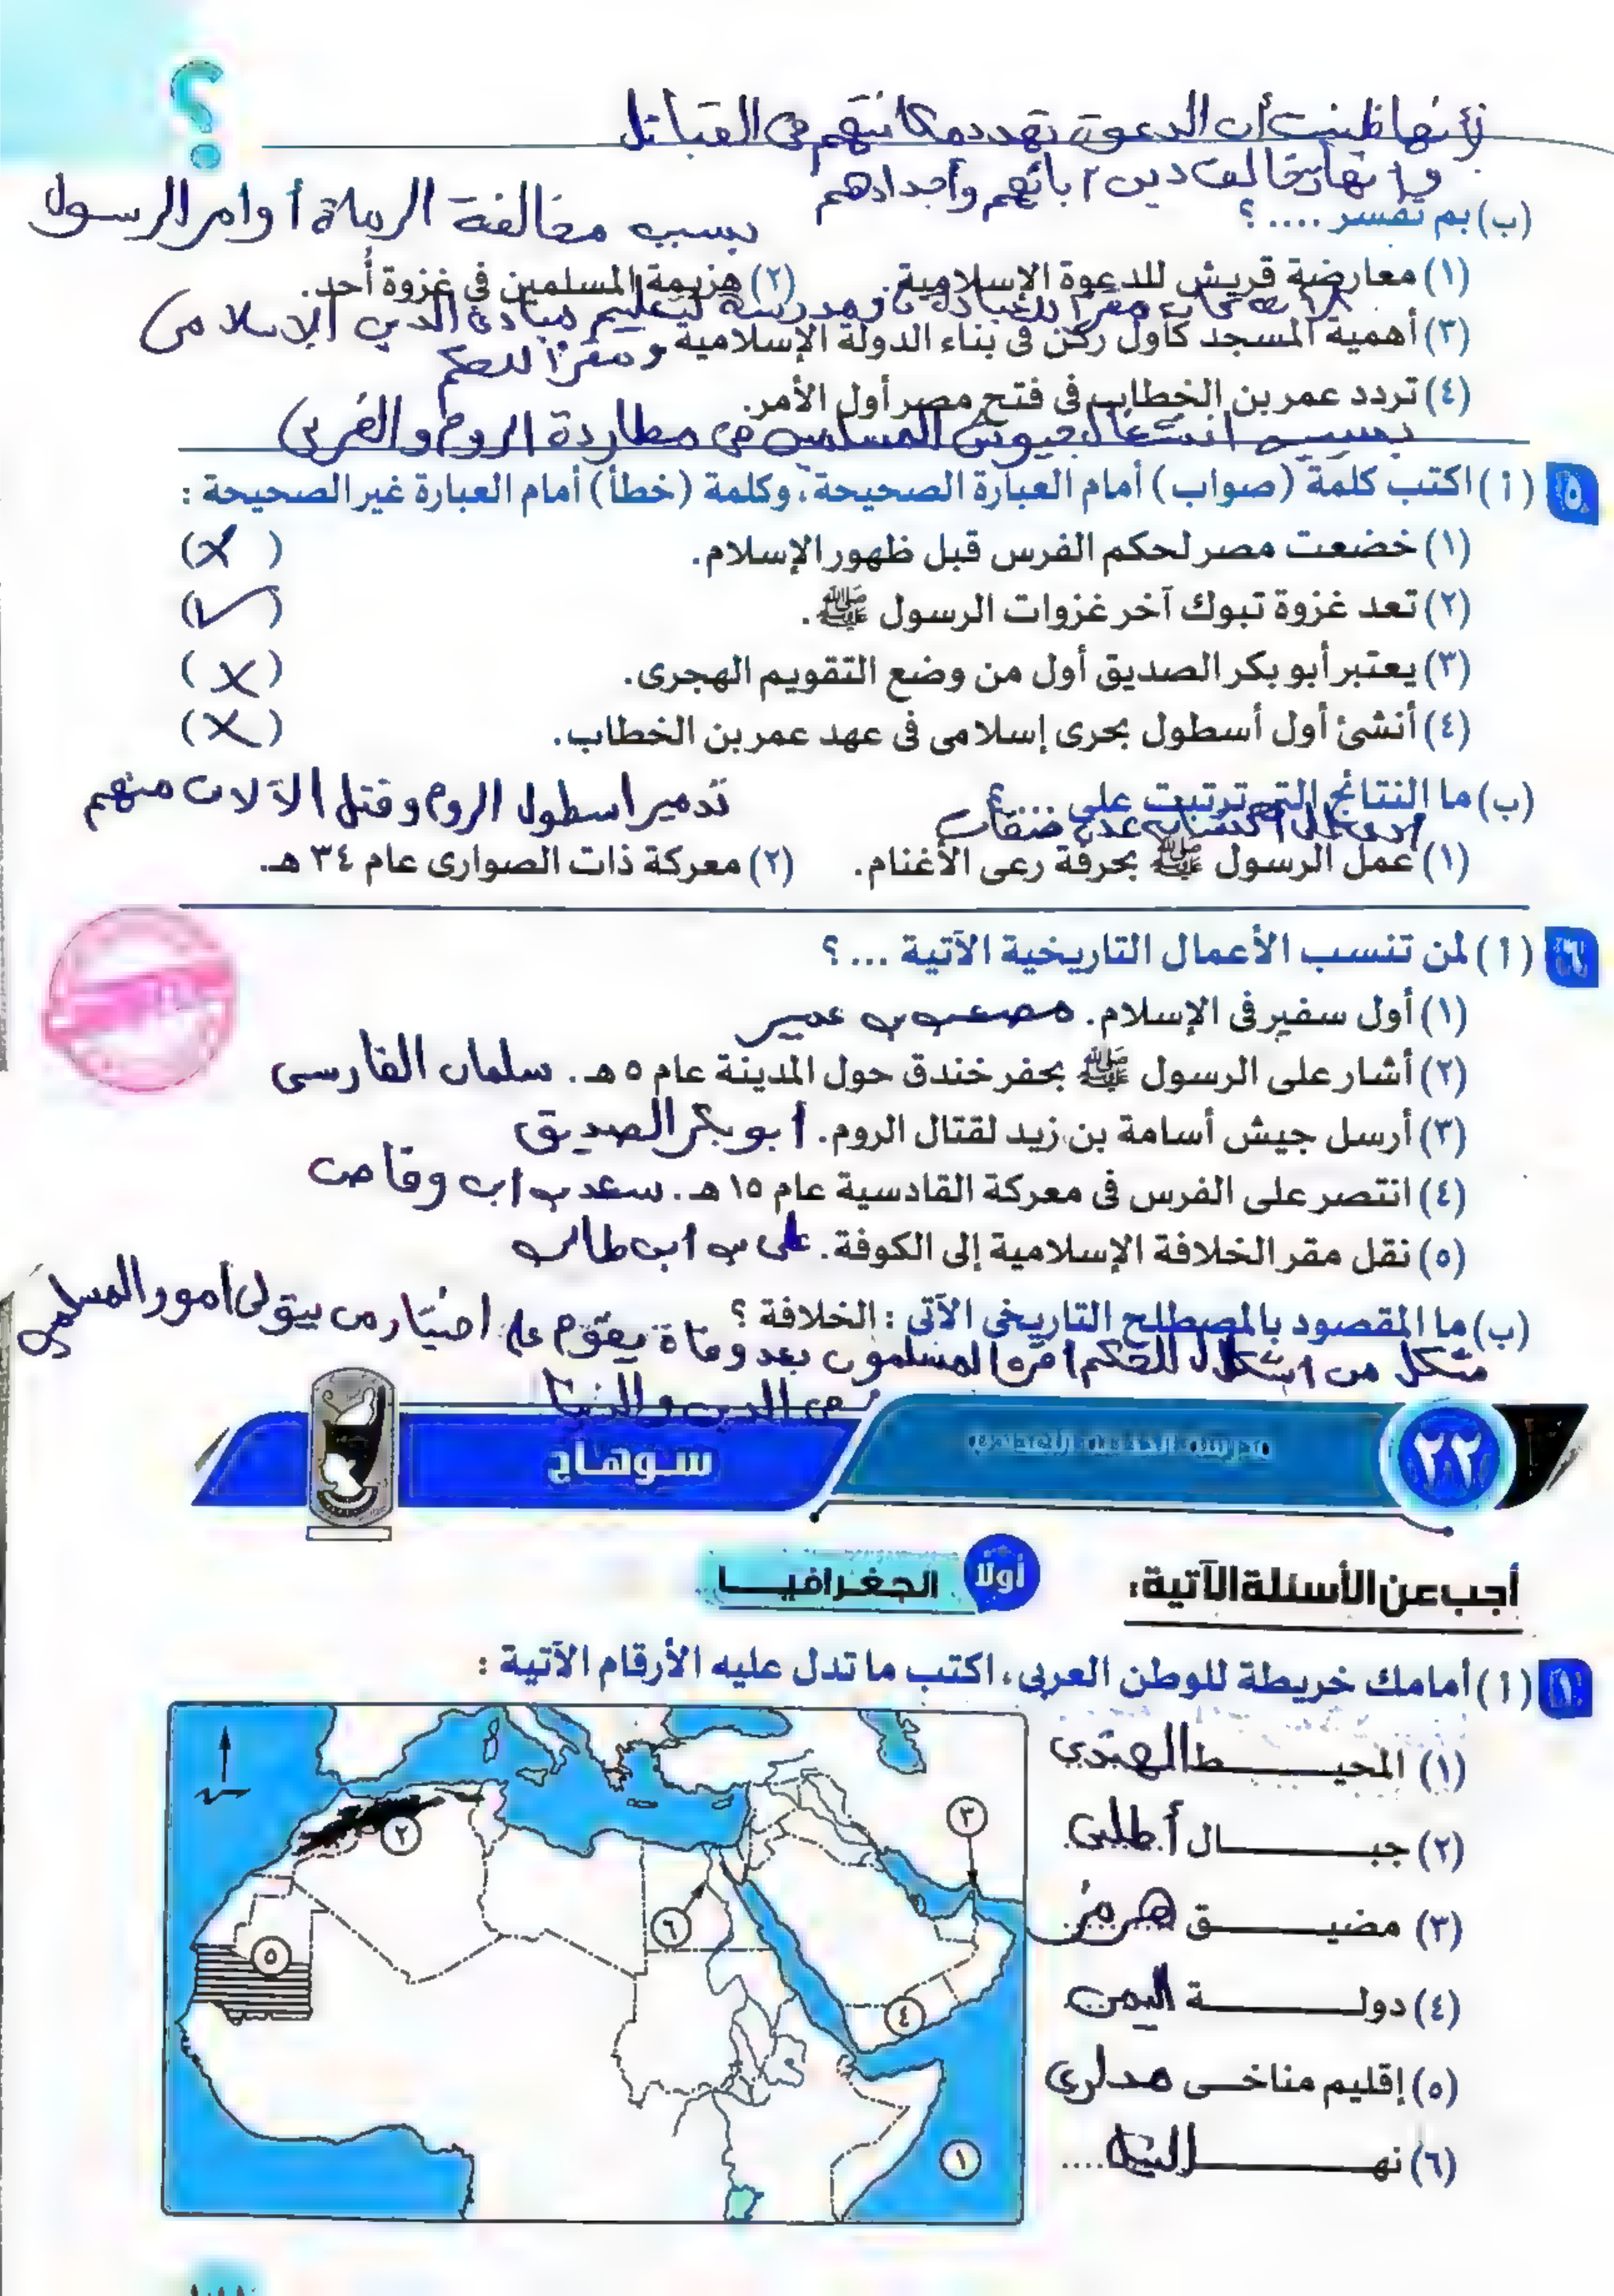 لأنها ظنت أن الدعوة تهدد مكانتهم في القبائل
و انها تخالف دين آبائهم وأجدادهم
(ب) بم تفسر .... ؟
بسبب مخالفة الرماة أوامر الرسول
(١) معارضة قريش للدعوة الإسلامية. (٢) هزيمة المسلمين فى غزوة أُحد.
مقرا للعبادة و مدرسة لتعليم مبادئ الدين الإسلامى
(٣) أهمية المسجد كأول ركن فى بناء الدولة الإسلامية
و مقرا للحكم
(٤) تردد عمر بن الخطاب فى فتح مصر أول الأمر.
بسبب انشغال جيوش المسلمين في مطاردة الروم والفرس
٥ (أ) اكتب كلمة (صواب) أمام العبارة الصحيحة، وكلمة (خطأ) أمام العبارة غير الصحيحة :
(١) خضعت مصر لحكم الفرس قبل ظهور الإسلام. (✗)
(٢) تعد غزوة تبوك آخر غزوات الرسول ﷺ. (✓)
(٣) يعتبر أبو بكر الصديق أول من وضع التقويم الهجرى. (✗)
(٤) أنشئ أول أسطول بحرى إسلامى فى عهد عمر بن الخطاب. (✗)
(ب) ما النتائج التى ترتبت على ....؟
تدمير اسطول الروم وقتل الآلاف منهم
اكتساب عدة صفات
(١) عمل الرسول ﷺ بحرفة رعى الأغنام. (٢) معركة ذات الصوارى عام ٣٤ هـ.
٦ (أ) لمن تنسب الأعمال التاريخية الآتية ... ؟
(١) أول سفير فى الإسلام. مصعب بن عمير
(٢) أشار على الرسول ﷺ بحفر خندق حول المدينة عام ٥ هـ. سلمان الفارسى
(٣) أرسل جيش أسامة بن زيد لقتال الروم. أبو بكر الصديق
(٤) انتصر على الفرس فى معركة القادسية عام ١٥ هـ. سعد بن اب وقاص
(٥) نقل مقر الخلافة الإسلامية إلى الكوفة. على بن ابى طالب
(ب) ما المقصود بالمصطلح التاريخى الآتى : الخلافة ؟
شكل من اشكال للحكم اقره المسلمون بعد وفاة يقوم على اختيار من يتولى أمور المسلمين
فى الدين والدنيا
٢٢ سوهاج
أجب عن الأسئلة الآتية:
أولًا الجغرافيا
١ (أ) أمامك خريطة للوطن العربى، اكتب ما تدل عليه الأرقام الآتية :
(١) المحيط الهندي
(٢) جبال أطلس
(٣) مضيق هرمز
(٤) دولة اليمن
(٥) إقليم مناخى مدارى
(٦) نهر النيل
٢
٣
٦
٥
٤
١